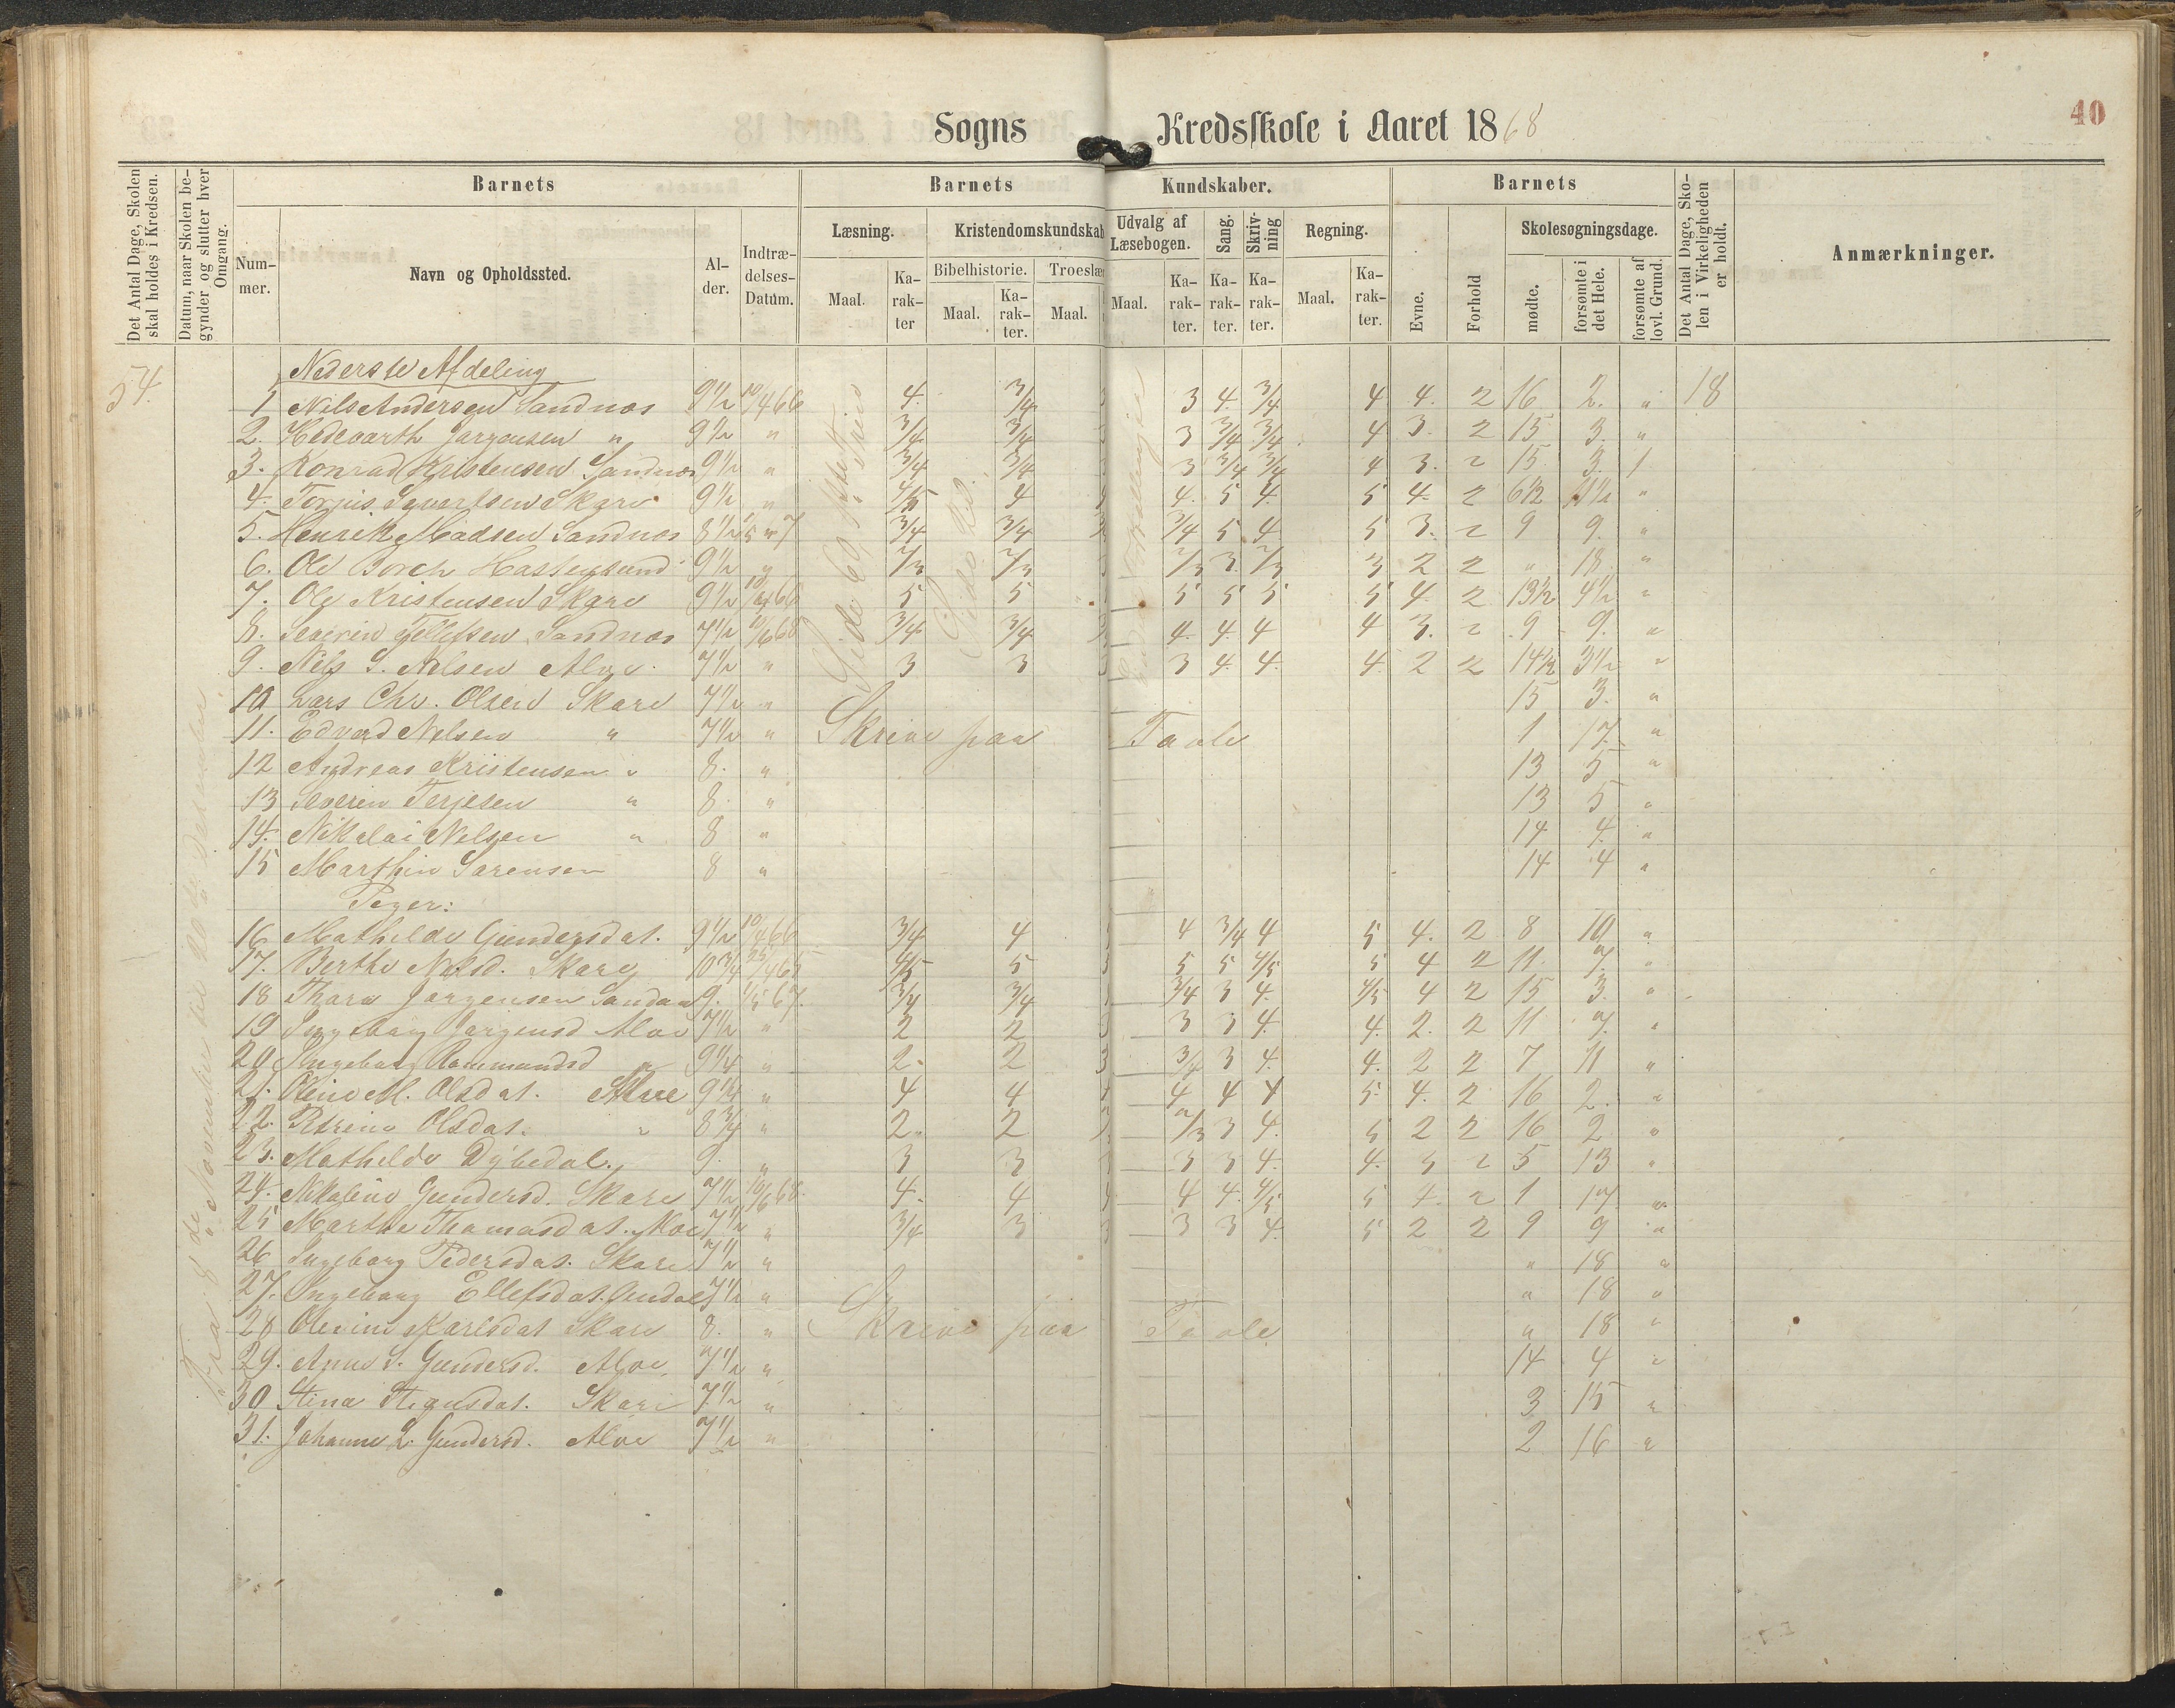 40
Sogns Kredsskole i Aaret 1868
Det Antal Dage, Skolen skal holdes i Kredsen.
Datum, naar Skolen begynder og slutter hver Omgang.
Barnets
Nummer.
Navn og Opholdssted.
Alder.
Indtrædelses-Datum.
Barnets Kundskaber.
Læsning.
Maal.
Karakter
Kristendomskundskab
Bibelhistorie.
Maal.
Karakter.
Troeslær
Maal.
Udvalg af Læsebogen.
Maal.
Karakter.
Sang.
Karakter.
Skrivning
Karakter.
Regning.
Maal.
Karakter.
Barnets
Evne.
Forhold
Skolesøgningsdage.
mødte.
forsømte i det Hele.
forsømte af lovl. Grund.
Det Antal Dage, Skolen i Virkeligheden er holdt.
Anmærkninger.
54.
Nederste Afdeling
1 Nils Andersen Sandnæs 9½ 10/4 66 4. 3/4 3 4. 3/4 4 4. 2 16 2. " 18
2. Hedevarth Jørgensen " 9½ " 3/4 3/4 3 3/4 3/4 4 3. 2 15 3. "
3. Konrad Kristensen Sandnæs 9½ " 3/4 3/4 3 3/4 3/4 4 3. 2 15 3. 1
4. Terjus Syvertsen Skare 9½ " 4/5 4 4. 5 4. 5 4. 2 6½ 11½ "
5. Henrik Madsen Sandnæs 8½ 3/4 3/4 3/4 5 4 5 3. 2 9 9. "
6. Ole Borch Hastensund 9½ " 2/3 2/3 2/3 3 2/3 3 2 2 " 18 "
7. Ole Kristensen Skare 9½ 10/4 66 5 5 5 5 5 5 4 2 13½ 4½ "
8. Severin Tellefsen Sandnæs 7½ 10/6 68 3/4 3/4 4. 4. 4 4 3. 2 9 9. "
9. Nils S. Nilsen Alve 7½ " 3 3 3 4. 4. 4. 2 2 14½ 3½ "
10 Lars Chr. Olsen Skare 7½ " 15 3. "
11. Edvard Nilsen " 7½ " Skrive paa Tavle 1 17. "
12 Andreas Kristensen " 8. " 13 5 "
13 Severin Terjesen " 8. " 13 5 "
14. Nikolai Nilsen " 8 " 14 4. "
15 Marthin Sørensen 8 " 14 4 "
Piger:
16 Mathilde Gundersdat. 9½ 10/4 66 3/4 4 4 3/4 4 5 4. 2 8 10 "
17. Berthe Nilsd. Skare 10¾ 25/4 65 4/5 5 5 5 4/5 5 4 2 11. 7. "
18 Thara Jørgensen 9. 1/5 67. 3/4 3/4 3/4 3 4. 4/5 4 2 15 3. "
19 Ingeborg Jørgensd Alve 7½ " 2 2 3 3 4. 4. 2. 2 11 7. "
20 Ingeborg " 9¼ " 2. 2 3 3/4 3 4. 4. 2 2 7 11 "
21. Oline M. Olsdat. Skare 9¼ " 4 4 4 4 4 5. 4. 2 16 2. "
22. Petrine Olsdat. " 8¾ " 2. 2 2/3 3 4. 5 2 2 16 2 "
23. Mathilde Dybedal. 9. " 3 3 3 3 4. 4. 3 2 5 13 "
24. Nikoline Gundersd. Skare 7½ 10/6 68. 4. 4 4 4. 4/5 5 4. 2 1 17. "
25 Marthe Thomasdat. Alve 7½ " 3/4 3 3 3 3 4. 5 2 2 9 9 "
26 Ingeborg Pedersdat. Skare 7½ " " 18 "
27. Ingeborg Ellefsdat. 7½ " " 18 "
28 Olevine Karlsdat Skare 8. " Skrive paa Tavle " 18 "
29. Anne S. Gundersd. Alve 7½ " 14 4 "
30 Stina Skare 7½ " 3 15 "
31. Johanne L. Gundersd. Alve 7½ " 2 16 "